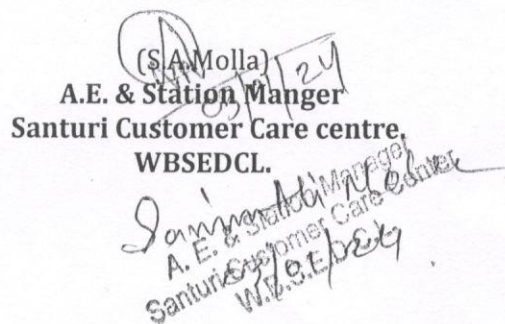 (S.A.Molla)
A.E. & Station Manger
Santuri Customer Care centre,
WBSEDCL.
A. E. & Station Manager
Santuri Customer Care Center
W.B.S.E.D.C.L